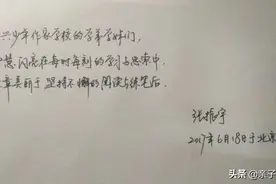 少年作家学校的学弟学妹们，
慧闪亮在每时每刻的学习与思索中
章美丽于坚持不懈的阅读与练笔后
张振宇
2017年6月18日于北京
头条@亲子